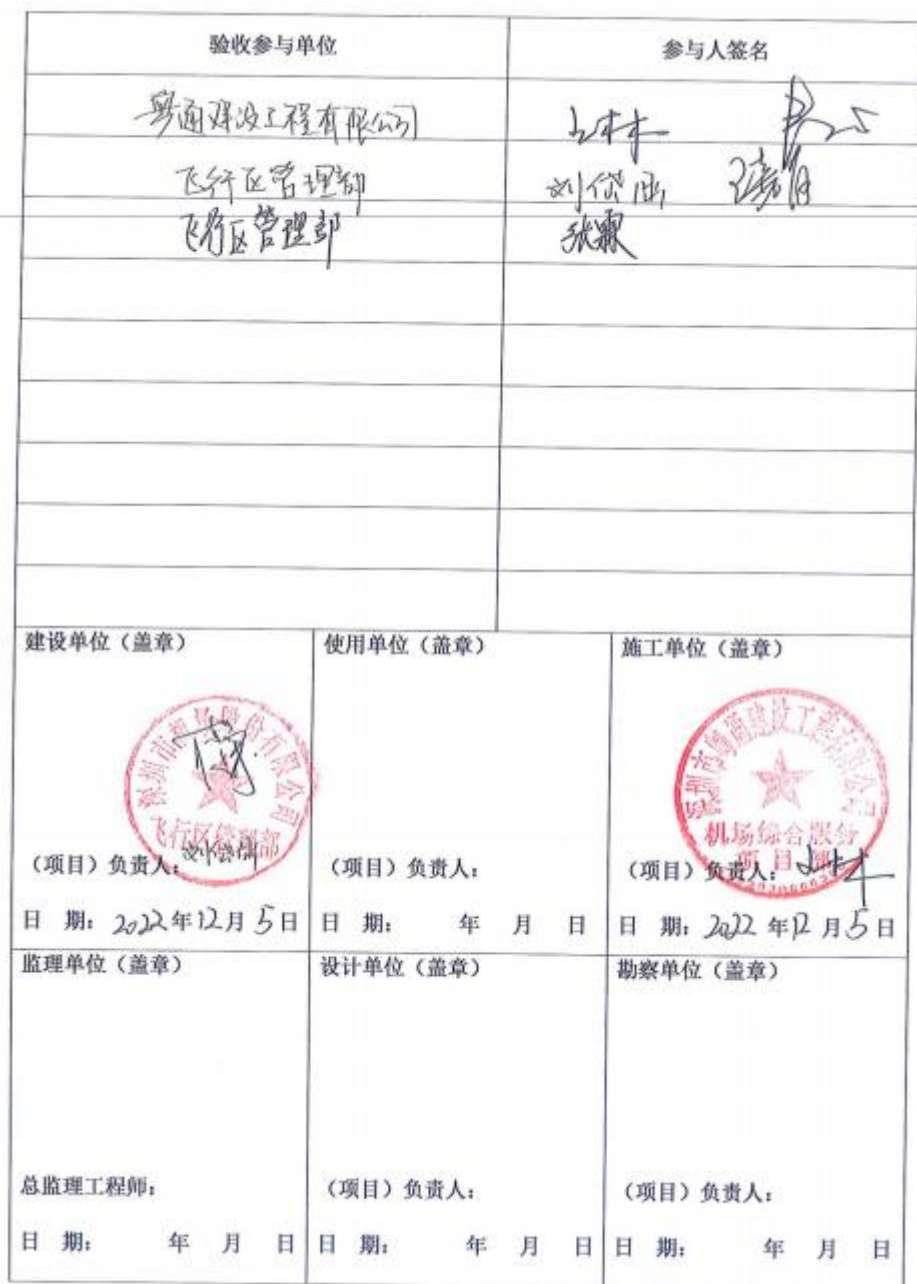 验收参与单位 参与人签名
粤通建设工程有限公司
飞行区管理部 刘岱
飞行区管理部 张霖
建设单位（盖章） 使用单位（盖章） 施工单位（盖章）
深圳市机场股份有限公司
飞行区管理部
深圳市粤通建设工程有限公司
机场综合服务
项目部
（项目）负责人： （项目）负责人： （项目）负责人：
日 期：2022年12月5日 日 期： 年 月 日 日 期：2022年12月5日
监理单位（盖章） 设计单位（盖章） 勘察单位（盖章）
总监理工程师： （项目）负责人： （项目）负责人：
日 期： 年 月 日 日 期： 年 月 日 日 期： 年 月 日